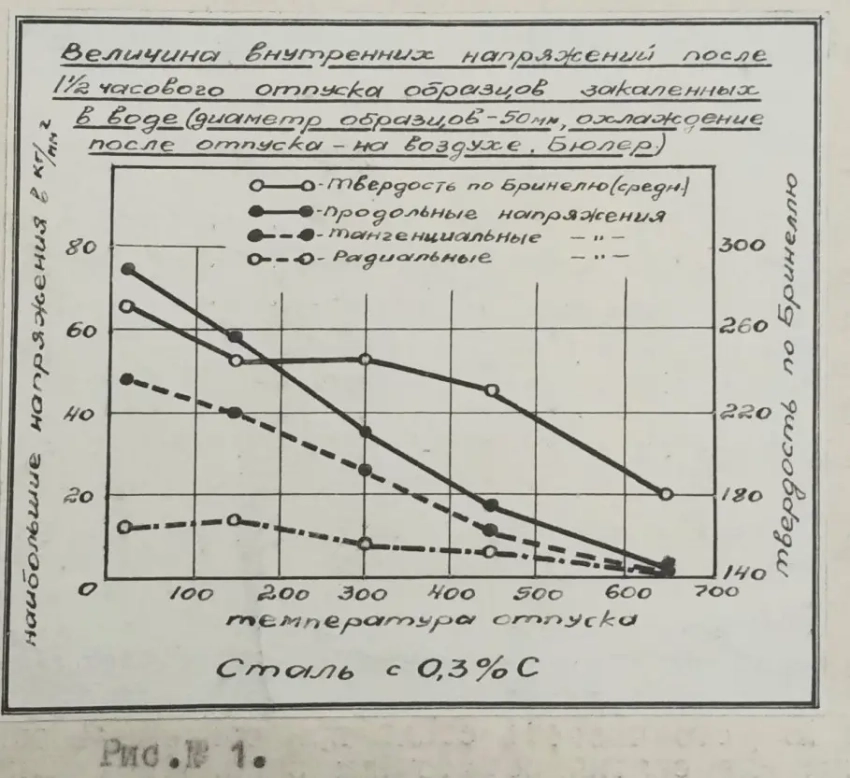 Величина внутренних напряжений после
1½ часового отпуска образцов закаленных
в воде (диаметр образцов-50мм, охлаждение
после отпуска - на воздухе. Бюлер)
наибольшие напряжения в кг/мм²
твердость по Бринеллю
-твердость по Бринелю(средн.)
-продольные напряжения
-тангенциальные -"-
-Радиальные -"-
80 300
60 260
40 220
20 180
0 140
100 200 300 400 500 600 700
температура отпуска
Сталь с 0,3% С
Рис.№ 1.